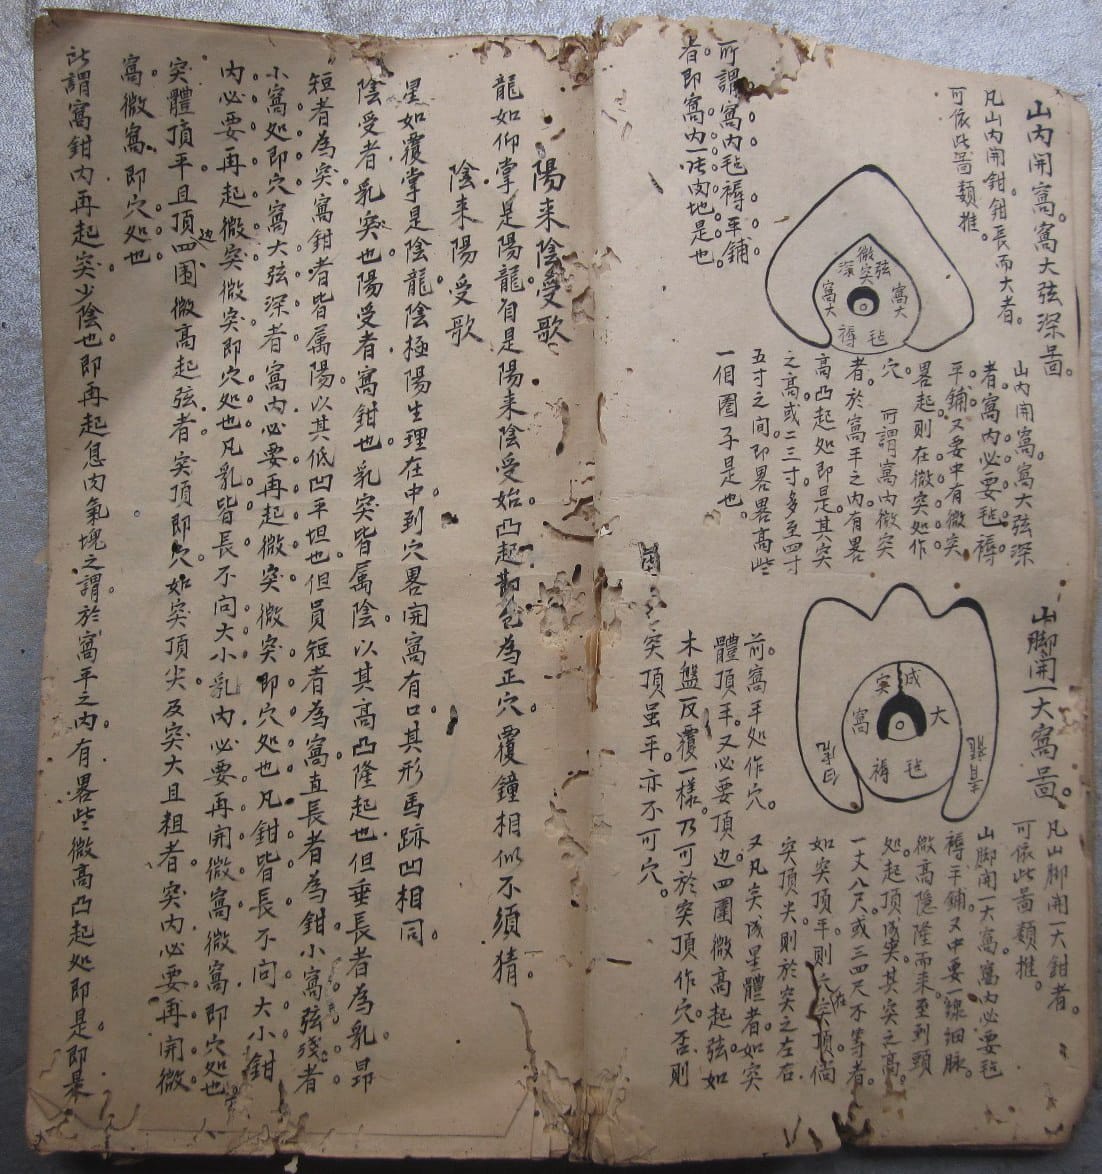 山內開窩窩大弦深啚
凡山內開鉗鉗長而大者
可依此啚類推
微突
弦
深
窩大
窩大
毡
褥
山內開窩窩大弦深
者窩內必要毡褥
平鋪又要中有微突
畧起則在微突処作
穴 所謂窩內微突
者於窩平之內有畧
高凸起処即是其突
之高或二三寸多至四寸
五寸之间即畧畧高些
一個圈子是也
所謂窩內毡褥平鋪
者即窩內一片肉地是也
山脚開一大窩啚
凡山脚開一大鉗者
可依此啚類推
成
突
大
窩
毡
褥
山脚開一大窩窩內必要毡
褥平鋪又中要一線細脉
微高隐隆而来至到頭
処起頂成突其突之高
一丈八尺或三四尺不等者
如突頂平則穴在突頂倘
突頂尖則於突之左右
前窩平処作穴
又凡突成星體者如突
體頂平又必要頂边四圍微高起弦如
木盤反覆一樣乃可於突頂作穴否則
突頂虽平亦不可穴
陽来陰受歌
龍如仰掌是陽龍自是陽来陰受始凸起為正穴覆鐘相似不須猜
陰来陽受歌
星如覆掌是陰龍陰極陽生理在中到穴畧開窩有口其形馬跡凹相同
陰受者乳突也陽受者窩鉗也乳突皆属陰以其高凸隆起也但垂長者為乳昂
短者為突窩鉗者皆属陽以其低凹平坦也但員短者為窩直長者為鉗小窩弦殘者
小窩処即穴窩大弦深者窩內必要再起微突微突即穴処也凡鉗皆長不向大小鉗
內必要再起微突微突即穴処也凡乳皆長不向大小乳內必要再開微窩微窩即穴処也
突體頂平且頂边四圍微高起弦者突頂即穴如突頂尖及突大且粗者突內必要再開微
窩微窩即穴処也
此謂窩鉗內再起突少陰也即再起息肉氣塊之謂於窩平之內有畧些微高凸起処即是即暴